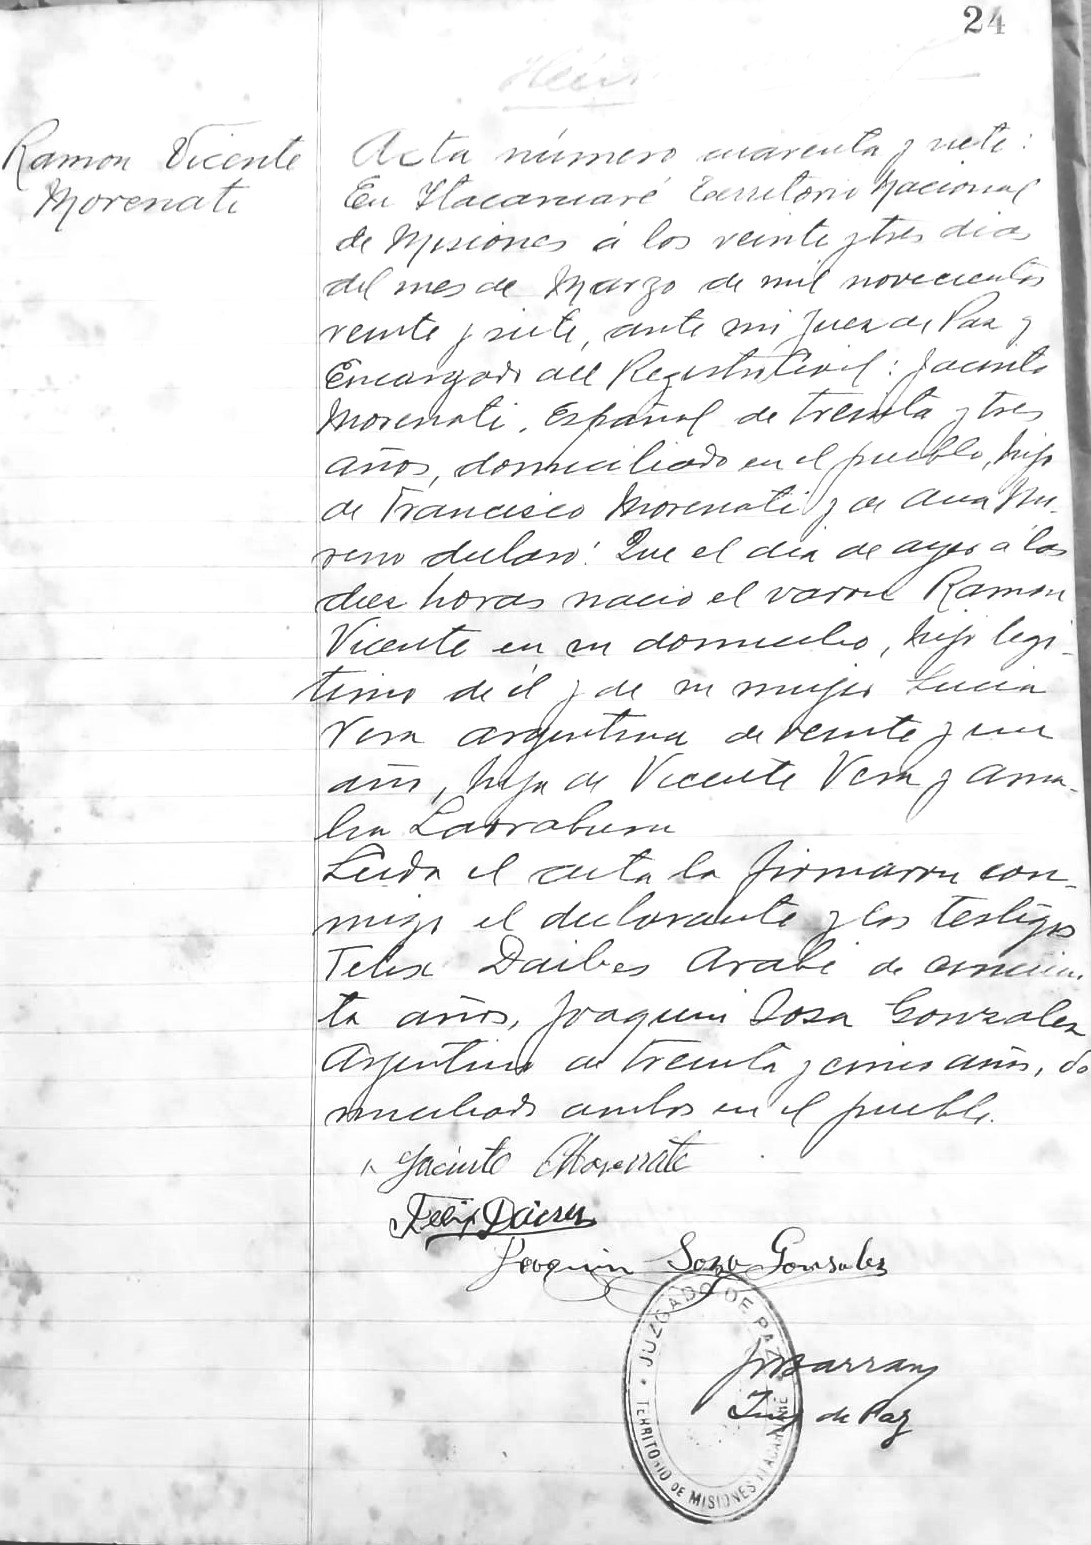 24
Ramon Vicente
Morenati
Acta número cuarenta y siete:
En Itacaruaré Territorio Nacional
de Misiones á los veinte y tres dias
del mes de Marzo de mil novecientos
veinte y siete, ante mi Juez de Paz y
Encargado del Registro Civil: Jacinto
Morenati, Español de treinta y tres
años, domiciliado en el pueblo, hijo
de Francisco Morenati y de Ana Mo-
reno declaró: Que el dia de ayer á las
diez horas nació el varon Ramon
Vicente en su domicilio, hijo legi-
timo de él y de su mujer Lucia
Vera argentina de veinte y un
años, hija de Vicente Vera y Ama-
lia Larraburu
Leida el acta la firmaron con-
migo el declarante y los testigos
Felix Daibes Arabe de cincuen
ta años, Joaquin Sosa Gonzalez
Argentino de treinta y cinco años, do
miciliados ambos en el pueblo.
Jacinto Morenate
Felix
Joaquin Sosa Gonsalez
JUZGADO DE PAZ
TERRITORIO DE MISIONES ITACARUARÉ
Juez de Paz